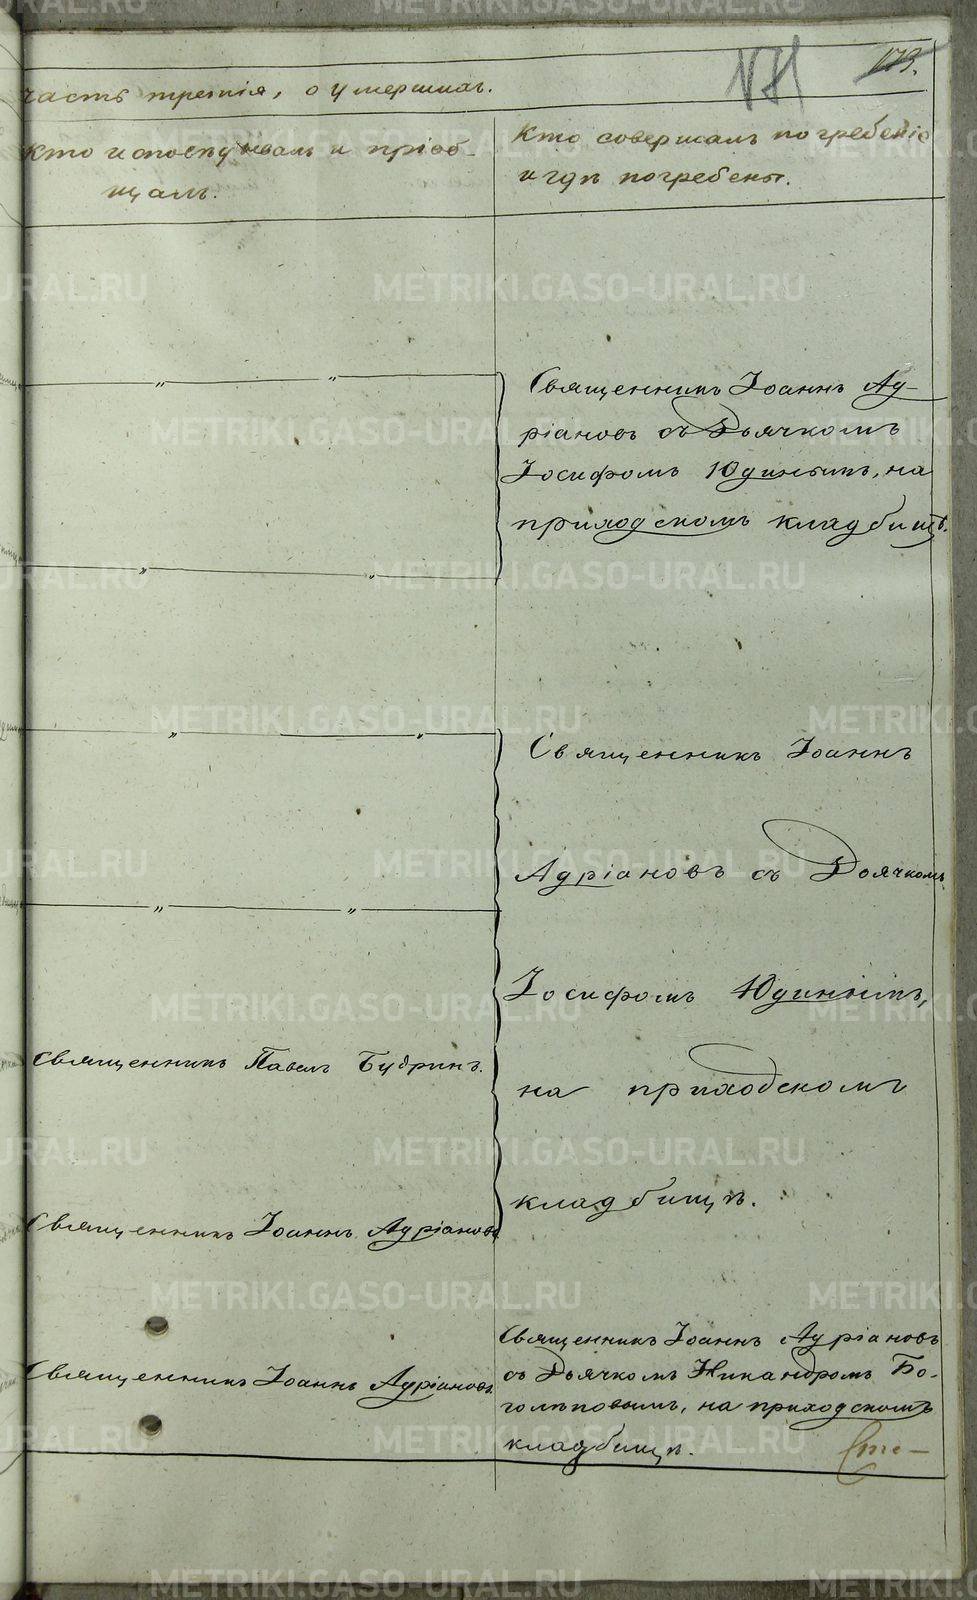 173.
171
часть третія, о умершихъ.
Кто исповѣдывалъ и пріоб-
щалъ.
Кто совершалъ погребеніе
и гдѣ погребены.
" "
Священникъ Іоаннъ Ад-
ріановъ съ Дьячкомъ
Іосифомъ Юдинымъ, на
приходскомъ кладбищѣ.
" "
" "
Священникъ Іоаннъ
Адріановъ съ Дьячкомъ
" "
Іосифомъ Юдинымъ,
Священникъ Павелъ Будринъ.
на приходскомъ
кладбищѣ.
Священникъ Іоаннъ Адріановъ
Священникъ Іоаннъ Адріановъ
Священникъ Іоаннъ Адріановъ
съ Дьячкомъ Никандромъ Бо-
голѣповымъ, на приходскомъ
кладбищѣ.
METRIKI.GASO-URAL.RU